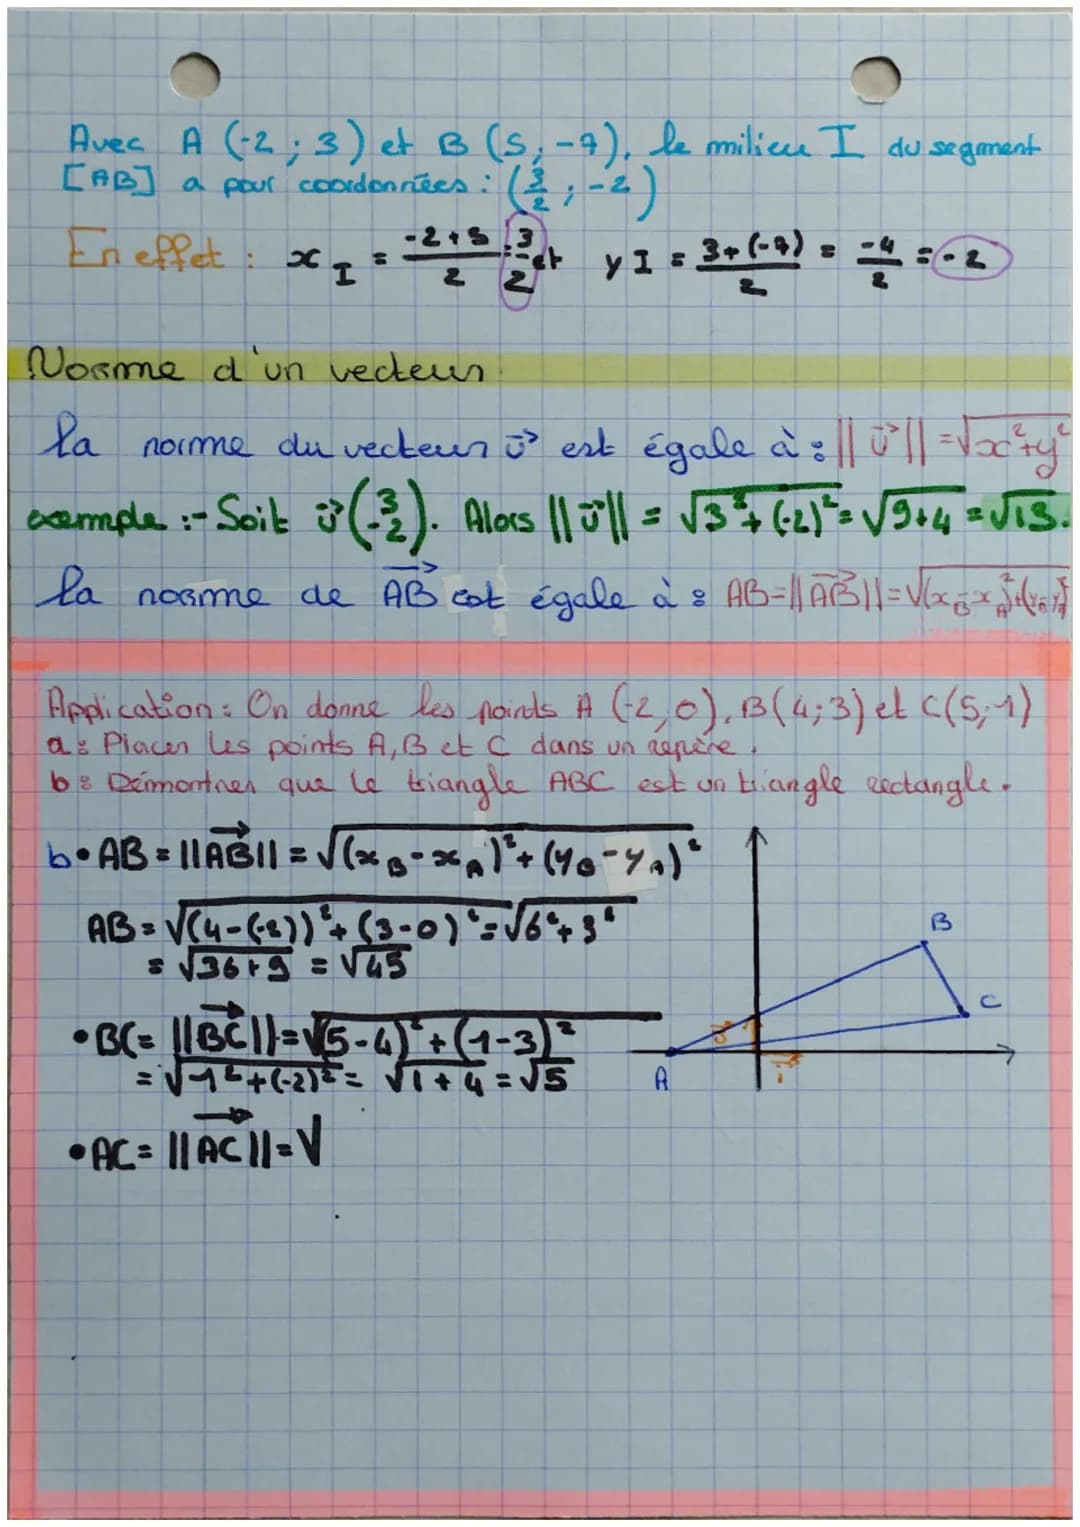 Avec A (-2 ; 3) et B (5 ; -7), le milieu I du segment
[AB] a pour coordonnées : (3/2 ; -2)
En effet : x_I = (-2+5)/2 = 3/2 et y I = (3+(-7))/2 = -4/2 = -2
Norme d'un vecteur
la norme du vecteur u⃗ est égale à : ||u⃗|| = √(x²+y²)
exemple :- Soit u⃗ (3 -2). Alors ||u⃗|| = √(3²+(-2)²) = √(9+4) = √13.
la norme de AB⃗ est égale à : AB = ||AB⃗|| = √((x_B-x_A)²+(y_B-y_A)²)
Application : On donne les points A (-2,0), B(4;3) et C(5;1)
a : Placer les points A, B et C dans un repère.
b : Démontrer que le triangle ABC est un triangle rectangle.
b • AB = ||AB⃗|| = √((x_B-x_A)²+(y_B-y_A)²)
AB = √((4-(-2))²+(3-0)²) = √(6²+3²)
= √(36+9) = √45
• BC = ||BC⃗|| = √((5-4)²+(1-3)²)
= √(-1²+(-2)²) = √(1+4) = √5
• AC = ||AC⃗|| = √
B
C
A
j
i